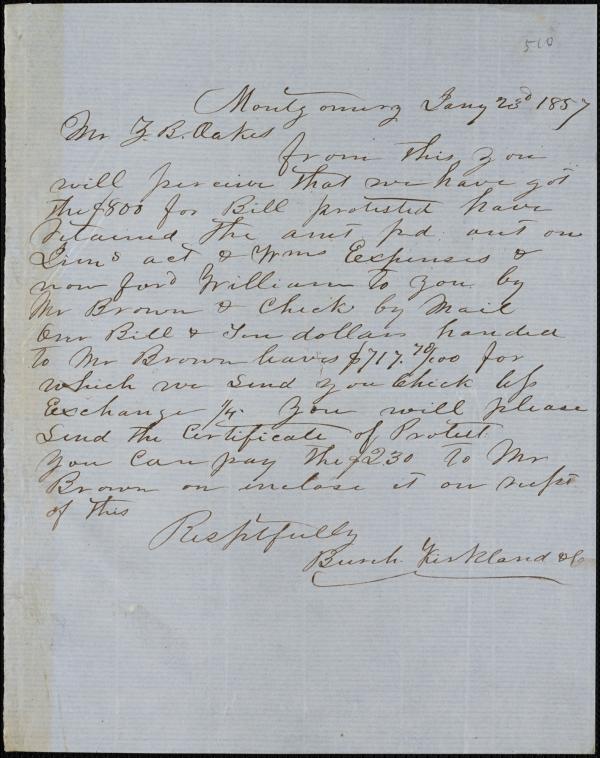 510
Montgomery Jany 23d 1857
Mr Z. B. Oakes
from this you
will perceive that we have got
the $800 for Bill protested have
retained the amt pd out on
act & Wms Expenses &
now ford William to you by
Mr Brown & Check by Mail
Our Bill & Ten dollars handed
to Mr Brown leaves $717.70/100 for
which we send you Check less
Exchange 1/4. You will please
Send the Certificate of Protest
You can pay the $230 to Mr
Brown or inclose it on recpt
of this
Resptfully
Burch Kirkland & Co